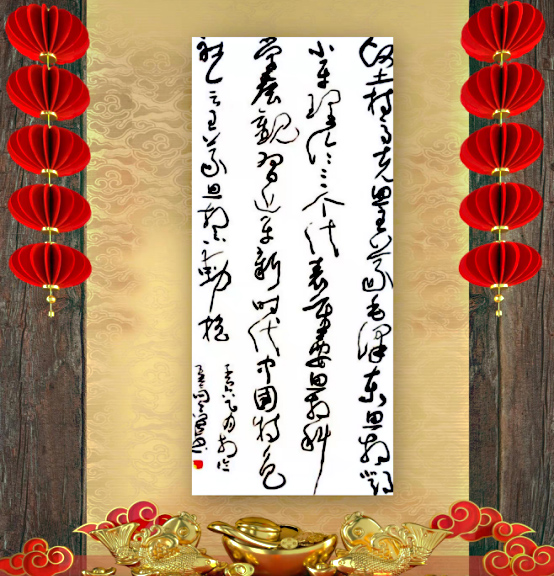 坚持马克思主义毛泽东思想邓
小平理论三个代表重要思想科
学发展观习近平新时代中国特色
社会主义思想不动摇